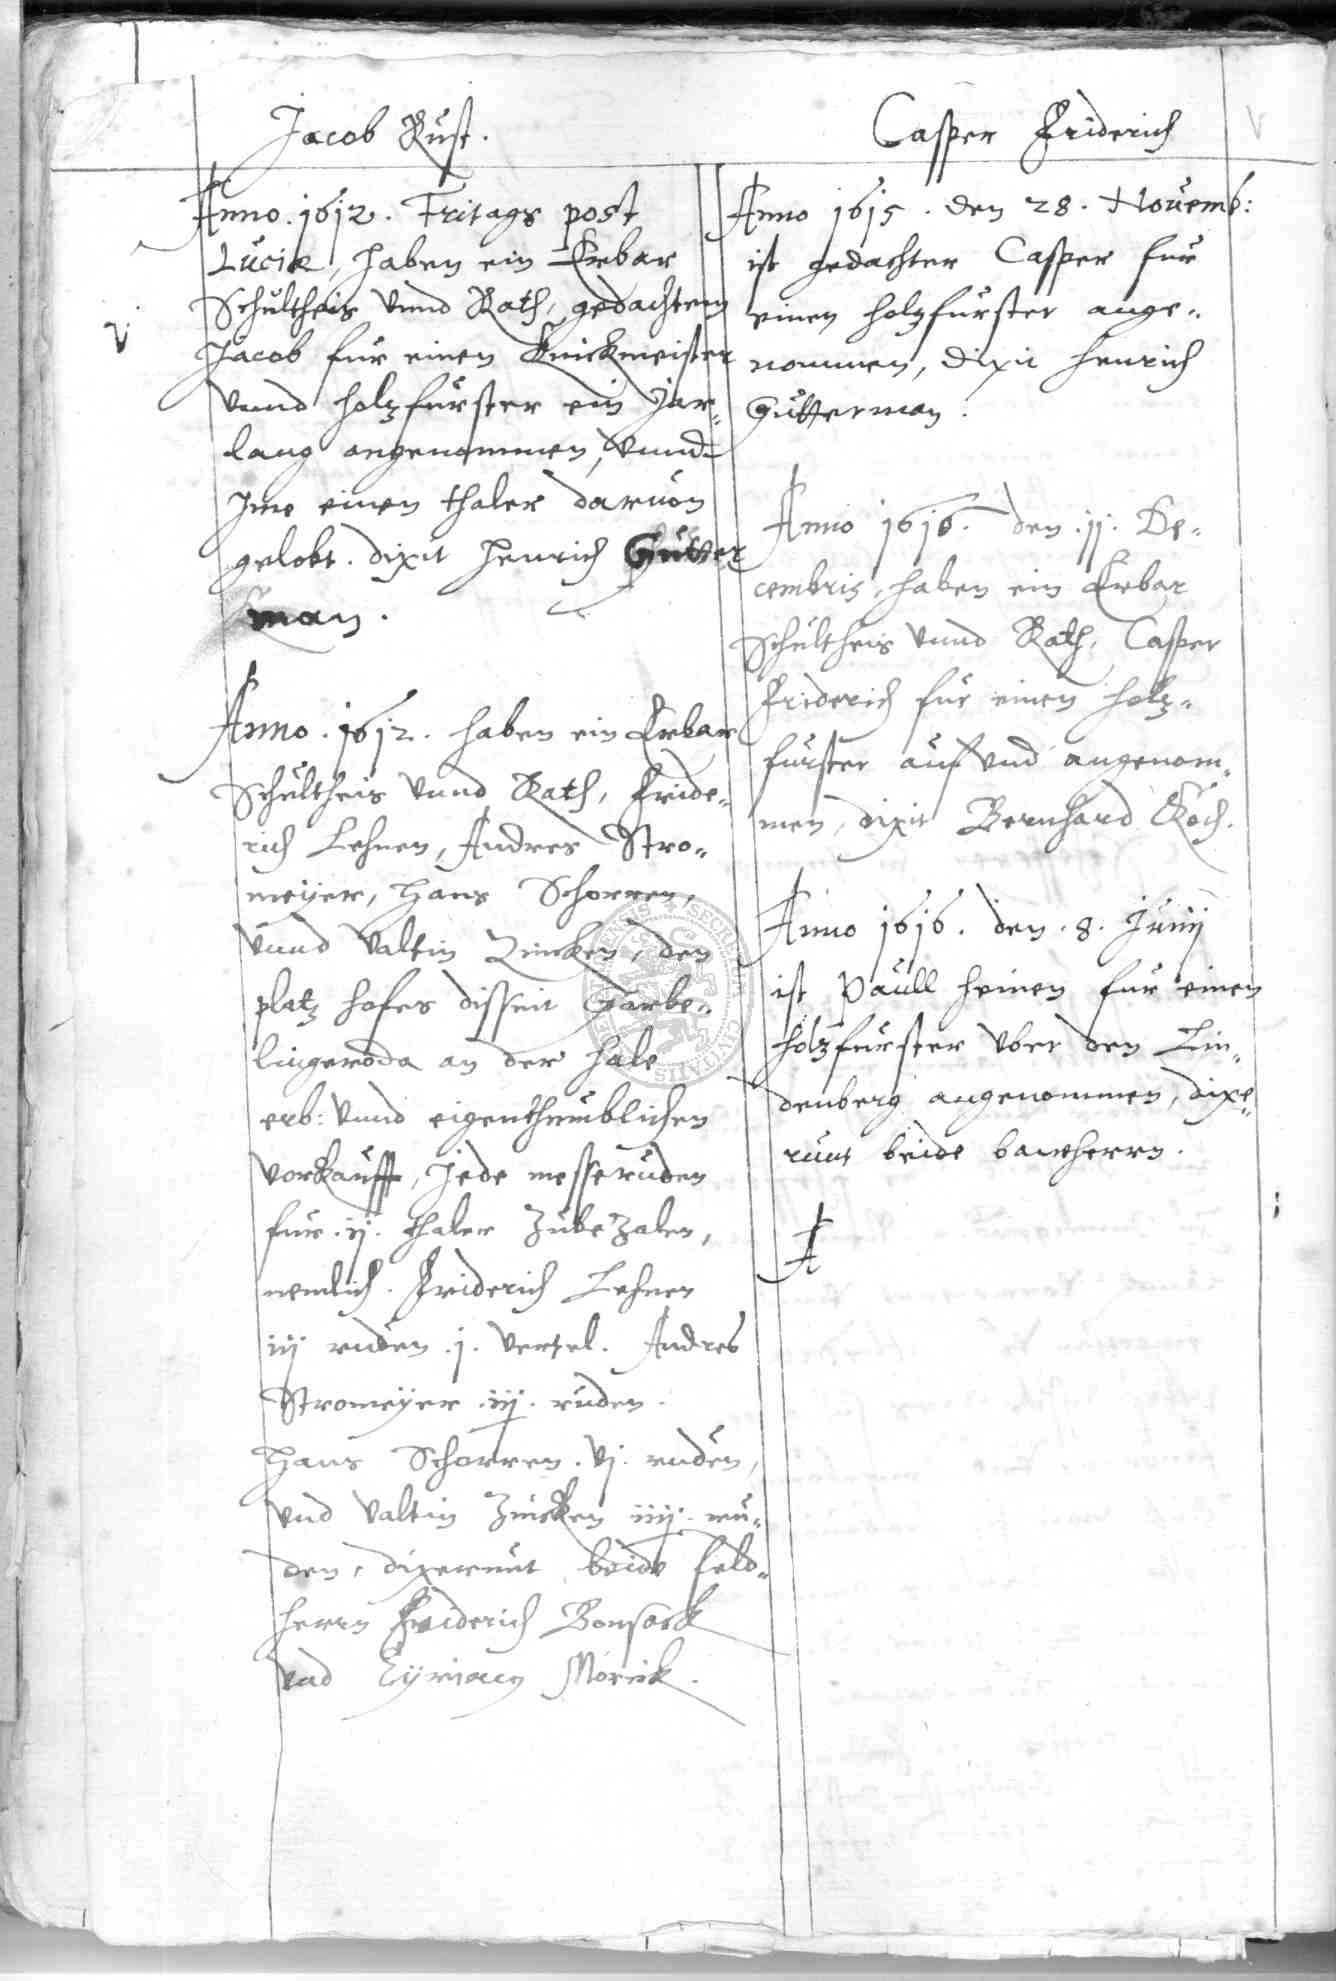 Jacob Rust.
Anno .1612. Fritags post
Luciæ, haben ein Erbar
Schultheis vnnd Rath, gedachtem
Jacob fur einen Knickmeister
vnnd holzfurster ein Jar„
lang angenommen, vnnd
Ime einen thaler daruon
gelobt. dixit Henrich Gutter
man.
Anno .1612. haben ein Erbar
Schultheis vnnd Rath, Fride„
rich Lehnen, Andres Stro„
meÿer, Hans Schorren,
vnnd Valtin Zincken, den
platz hofes disseit Garbe„
lingeroda an der Hale
erb: vnnd eigenthumblichen
vorkaufft, Jede messeruden
fur .ij. thaler zubezalen,
nemlich. Friderich Lehnen
iij ruden .j. vertel. Andres
Stromeÿer .iij. ruden.
Hans Schorren .vj. ruden,
vnd Valtin Zincken iiij. ru„
den, dixerunt beide feld„
herrn Friderich Bonsack
vnd Cÿriacy Morick.
Casper Friderich
Anno 1615. den 28. Nouemb:
ist gedachter Casper fur
einen holzfurster ange„
nommen, dixit Henrich
Gutterman.
Anno 1616. den .11. De„
cembris, haben ein Erbar
Schultheis vnnd Rath, Casper
Friderich fur einen holz„
furster auf vnd angenom„
men, dixit Bernhard Koch.
Anno 1616. den .8. Junij
ist Paull Heinen fur einen
holzfurster vber den Lin„
denberg angenommen, dixe„
runt beide bawherrn.
A